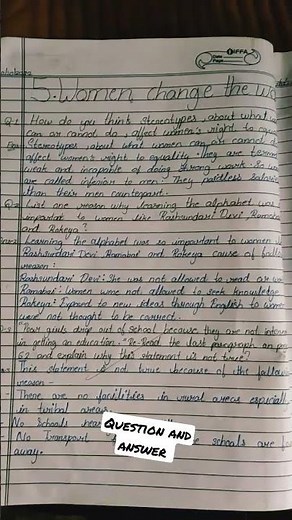 IFFA
Date
Page
5. Women change the wo
Q.1 How do you think stereotypes, about what wo
can or cannot do, affect women's right to equ
Stereotypes, about what women can or cannot d
affect women's right to equality. They are formed
weak and incapable of doing strong work. So wo
are called inferior to men. They
than their men counterpart.
List one reason why learning the alphabet was
important to women like Rashsundari Devi, Ramaba
and Rokeya?
Learning the alphabet was so important to women
Rashsundari Devi Ramabai and Rokeya cause of follo
reason:
Rashsundari Devi: She was not allowed to read or w
Ramabai: Women were not allowed to seek knowledge
Rokeya: Exposed to new ideas through English to women
were not thought to be correct.
"Poor girls drop out of school because they are not inter
in getting an education." Re-Read the last paragraph on pa
62 and explain why this statement is not true?
This statement is not true because of the follow
reason -
- There are no facilities in rural areas especiall
in tribal areas.
- No Schools near
- No Transport schools are far
away.
QUESTION AND
ANSWER